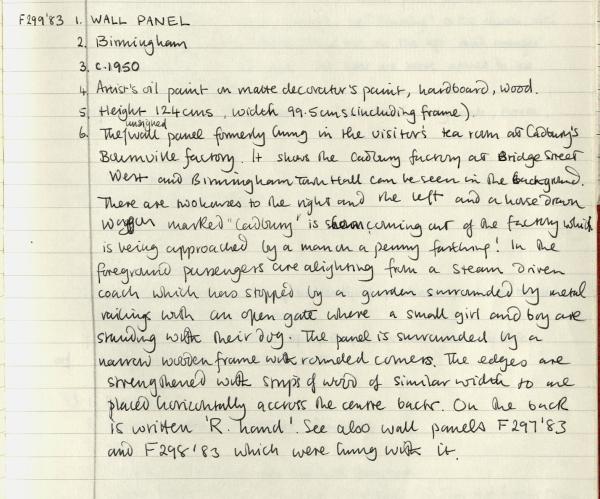 F299'83 1. WALL PANEL
2. Birmingham
3. c.1950
4. Artist's oil paint on matte decorator's paint, hardboard, wood.
5. Height 124cms, width 99.5cms (including frame).
6. The unsigned wall panel formerly hung in the visitor's tea room at Cadbury's
Bournville factory. It shows the Cadbury factory at Bridge Street
West and Birmingham Town Hall can be seen in the background.
There are two houses to the right and the left and a horse drawn
waggon marked "Cadbury" is shown coming out of the factory which
is being approached by a man on a penny farthing! In the
foreground passengers are alighting from a steam driven
coach which has stopped by a garden surrounded by metal
railings with an open gate where a small girl and boy are
standing with their dog. The panel is surrounded by a
narrow wooden frame with rounded corners. The edges are
strengthened with strips of wood of similar width to one
placed horizontally accross the centre back. On the back
is written 'R. hand'. See also wall panels F297'83
and F298'83 which were hung with it.